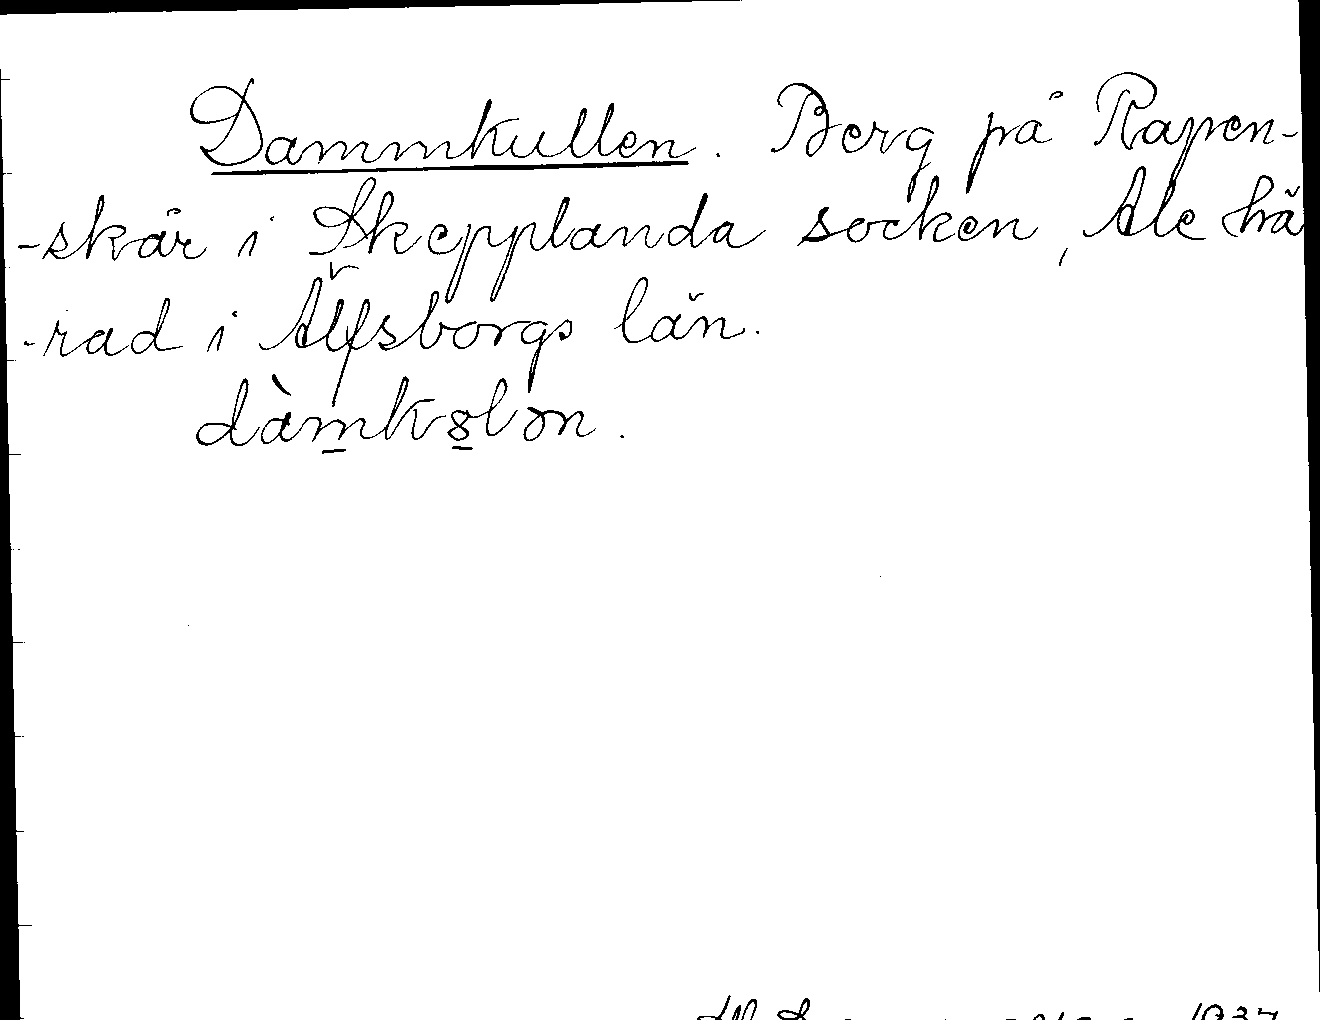 Dammkullen. Berg på Rapen-
-skär i Skepplanda socken, Ale hä
-rad i Älfsborgs län.
dàmkɷlən.
1937